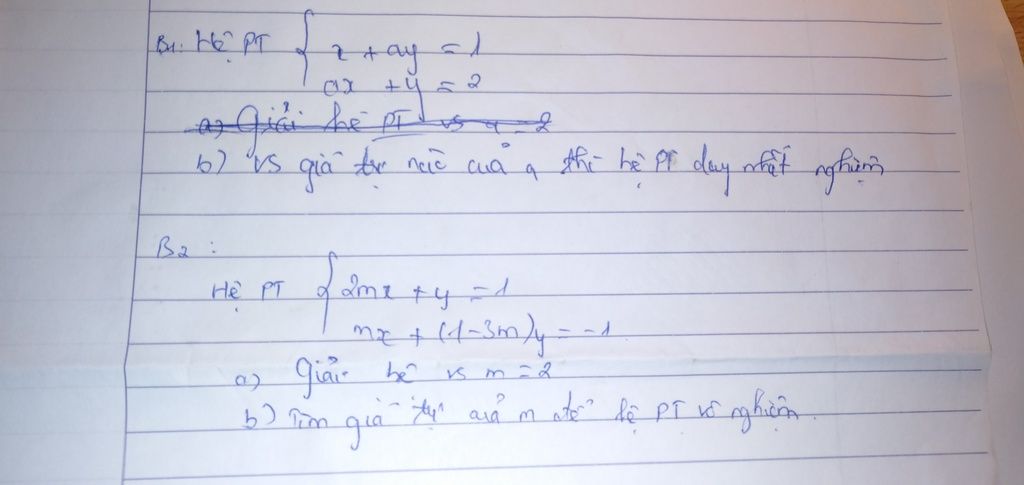 B1: Hệ PT { x + ay = 1
ax + y = 2
a) Giải hệ PT vs a = 2
b) vs giá trị nào của a thì hệ PT duy nhất nghiệm
B2 :
Hệ PT { 2mx + y = 1
mx + (1-3m)y = -1
a) Giải hệ vs m = 2
b) Tìm giá trị của m để hệ PT vô nghiệm.